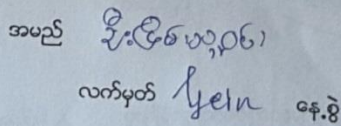 အမည် ဦးငြိမ်
လက်မှတ် Yein နေ့စွဲ